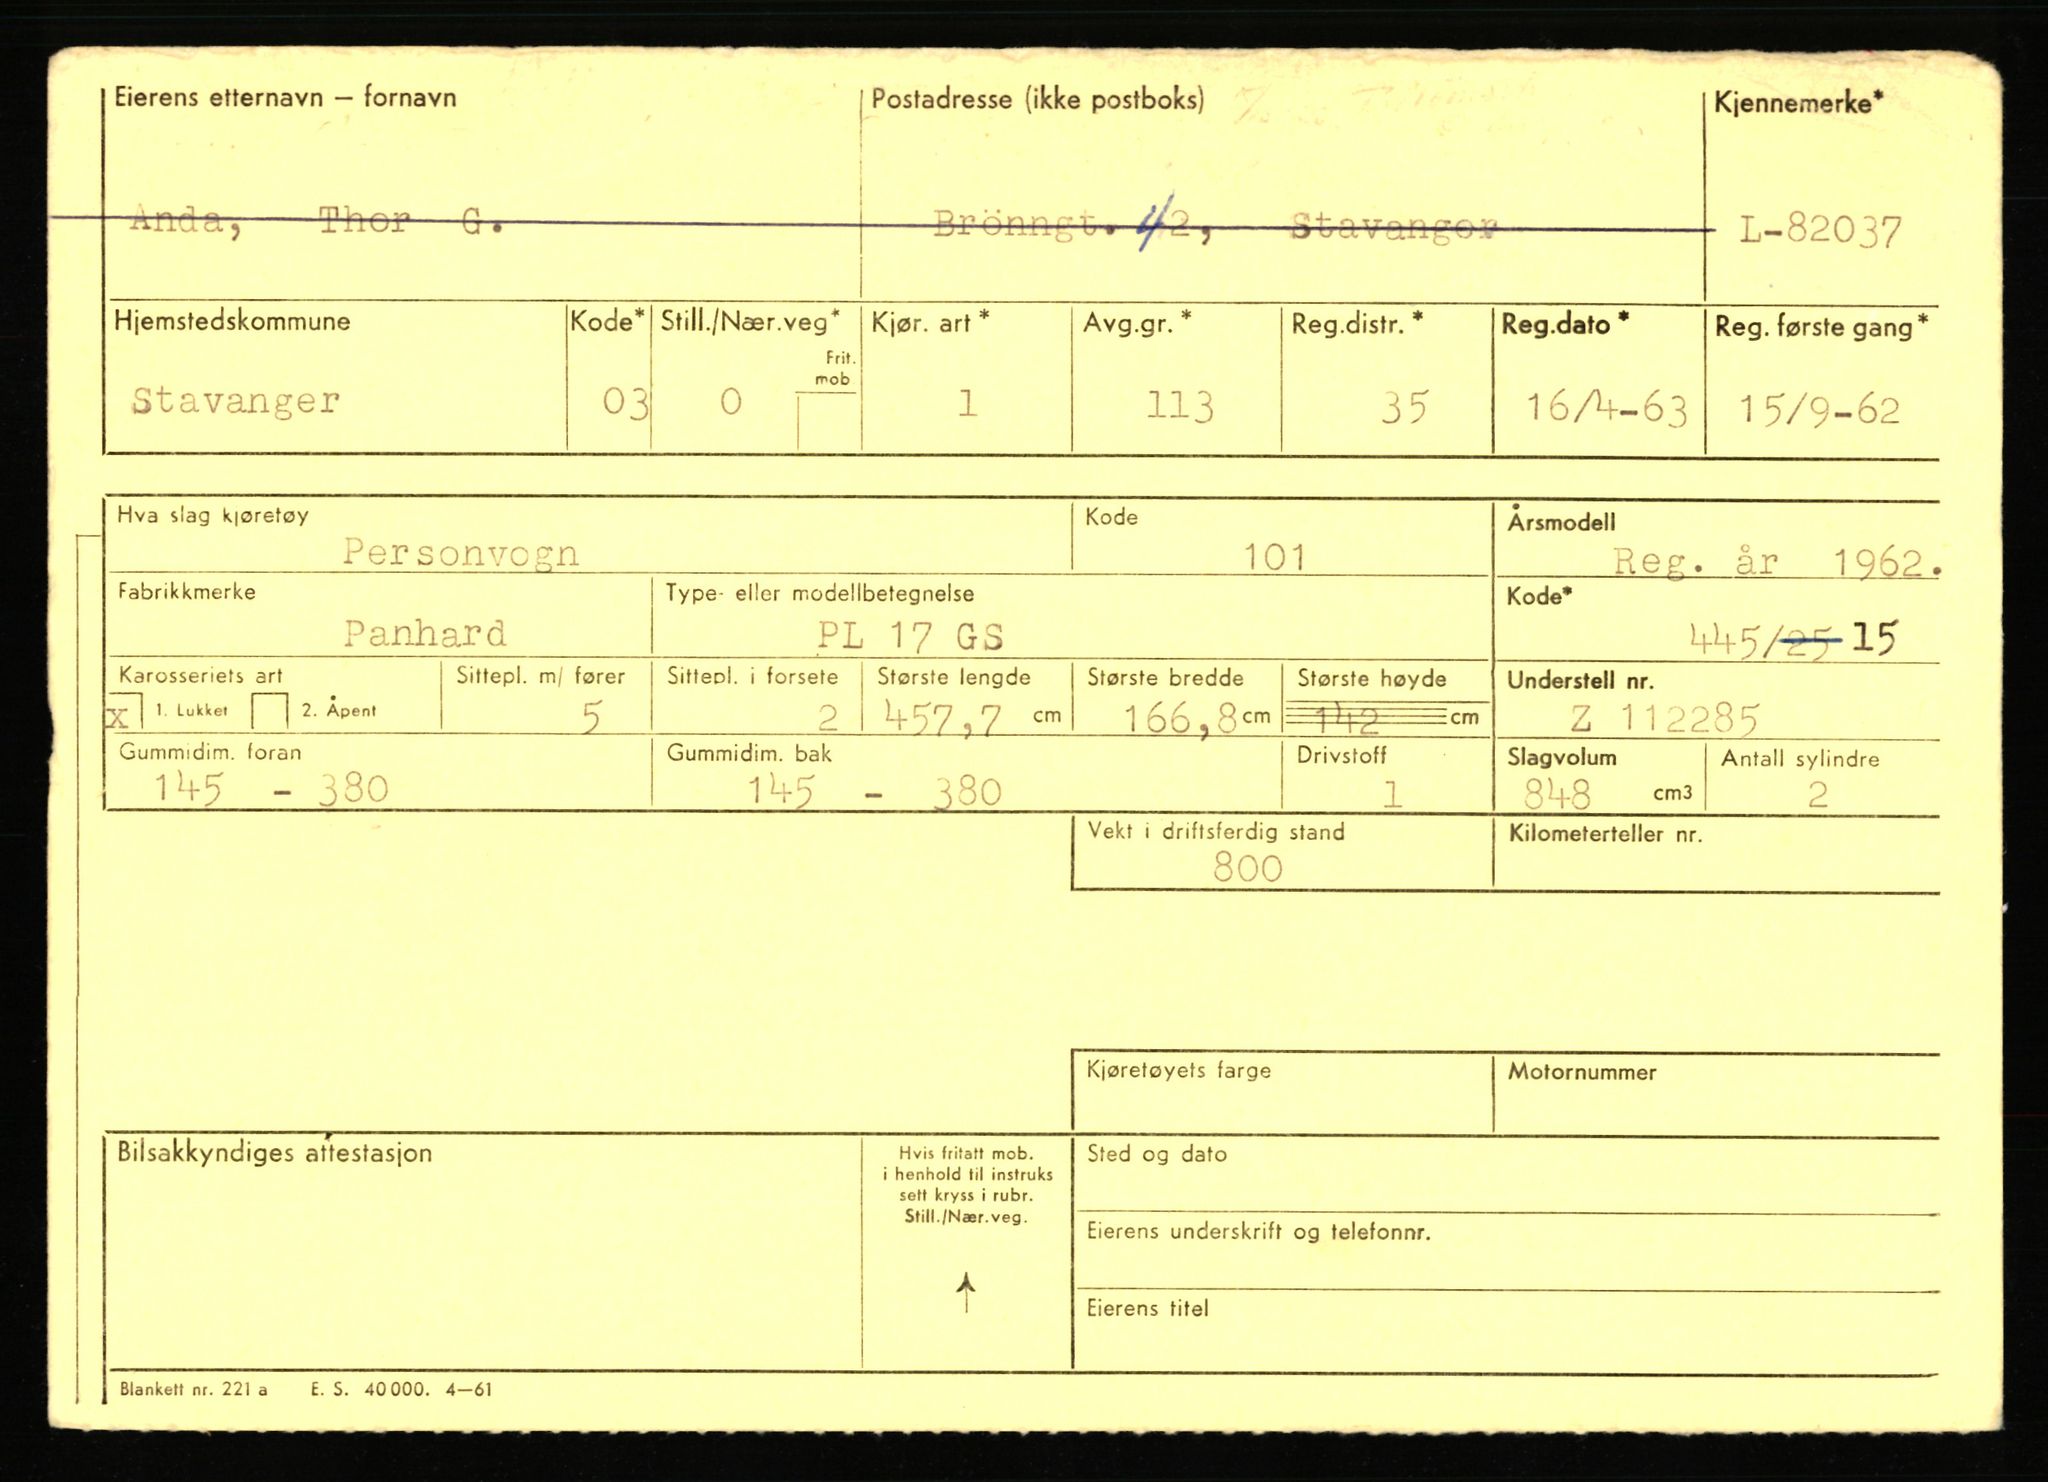 Eierens etternavn – fornavn Postadresse (ikke postboks) Kjennemerke*
Anda, Thor G. Brönngt. 42, Stavanger L-82037
Hjemstedskommune Kode* Still./Nær.veg* Kjør. art* Avg.gr.* Reg.distr.* Reg.dato* Reg. første gang*
Frit.
mob
Stavanger 03 0 1 113 35 16/4-63 15/9-62
Hva slag kjøretøy Kode Årsmodell
Personvogn 101 Reg. år 1962.
Fabrikkmerke Type- eller modellbetegnelse Kode*
Panhard PL 17 GS 445/25 15
Karosseriets art Sittepl. m/ fører Sittepl. i forsete Største lengde Største bredde Største høyde Understell nr.
x 1. Lukket 2. Åpent 5 2 457,7 cm 166,8 cm 142 cm Z 112285
Gummidim. foran Gummidim. bak Drivstoff Slagvolum Antall sylindre
145 - 380 145 - 380 1 848 cm3 2
Vekt i driftsferdig stand Kilometerteller nr.
800
Kjøretøyets farge Motornummer
Bilsakkyndiges attestasjon Hvis fritatt mob. Sted og dato
i henhold til instruks
sett kryss i rubr.
Still./Nær.veg.
Eierens underskrift og telefonnr.
Eierens titel
Blankett nr. 221 a E. S. 40 000. 4–61